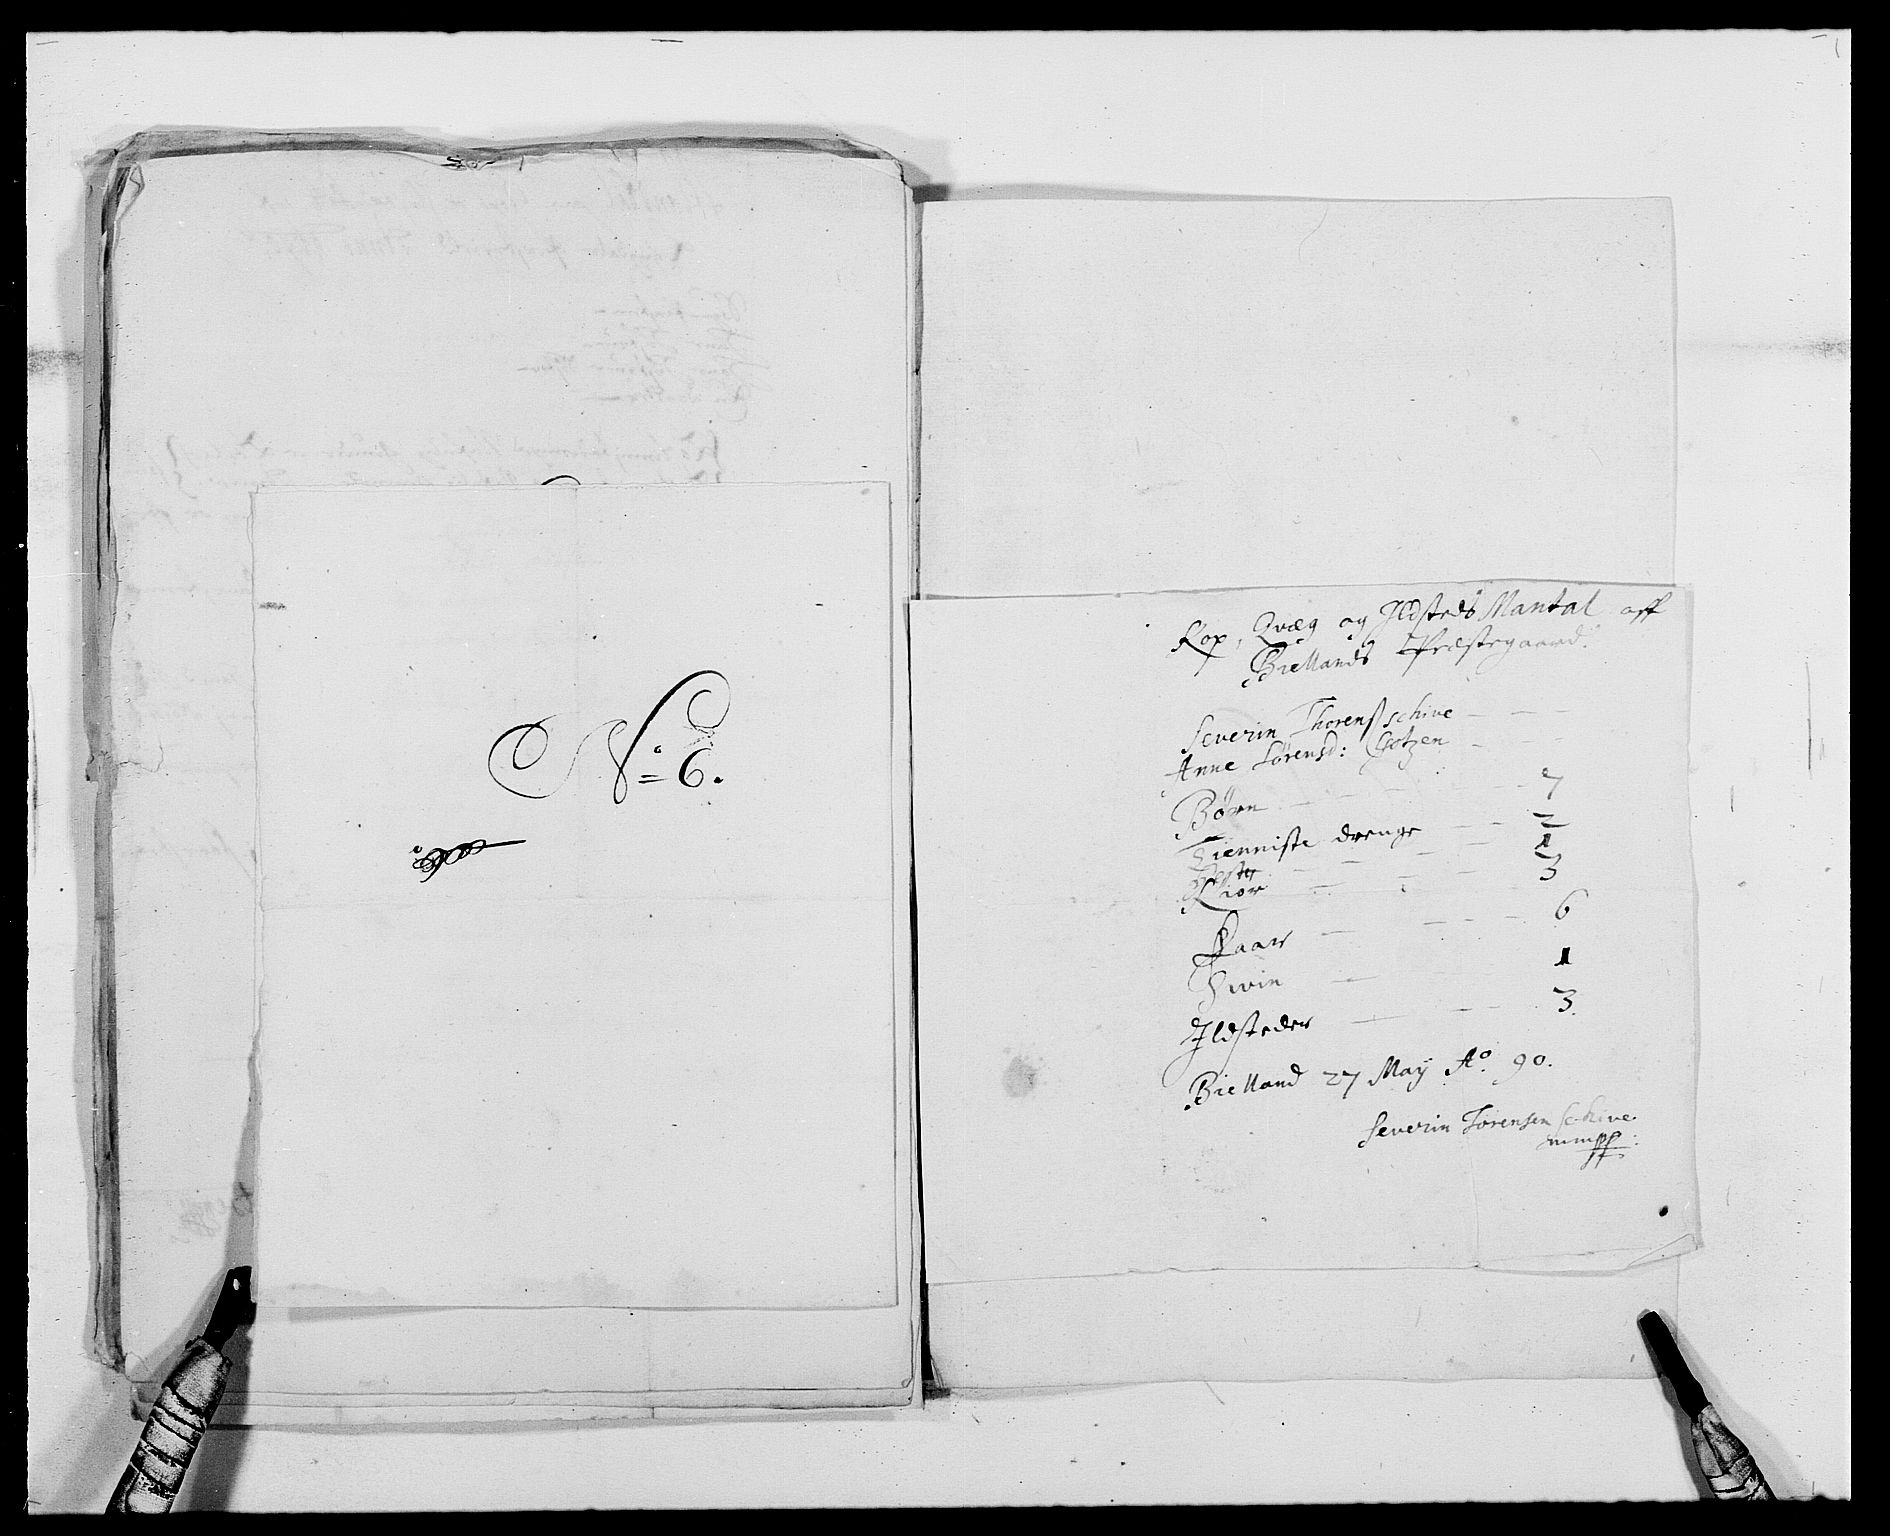 No 6.
Kop, Qvæg og Ildsteds Mantal aff
Biellands Præstegaard.
Severin Thorenss schive — — —
Anne Sørensd: Gotzen — — —
Børn — — — 7
Tienniste drenge — — 2
Hester — — — 1
Kiør — — — 3
Faar — — — 6
Swin — — — 1
Ildsteder — — — 3.
Bielland 27 Maÿ Ao. 90.
Severin Sørensen Schive
mmpp: